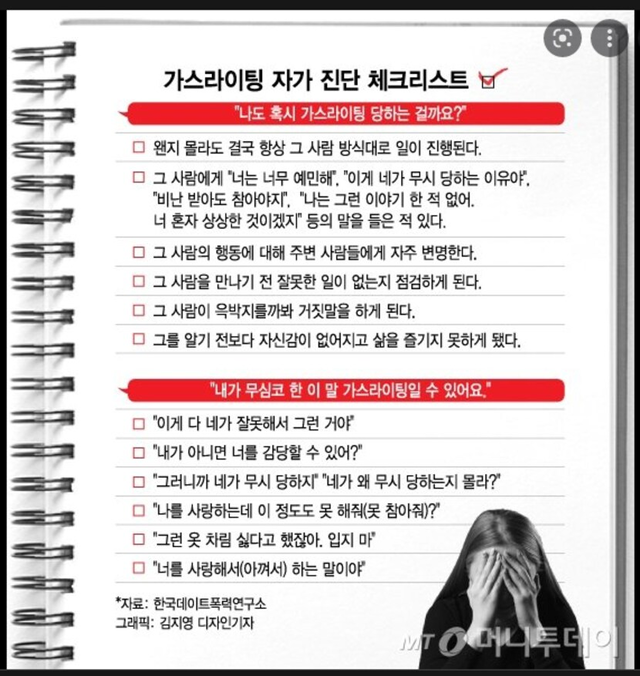 가스라이팅 자가 진단 체크리스트
"나도 혹시 가스라이팅 당하는 걸까요?"
왠지 몰라도 결국 항상 그 사람 방식대로 일이 진행된다.
그 사람에게 "너는 너무 예민해", "이게 네가 무시 당하는 이유야",
"비난 받아도 참아야지", "나는 그런 이야기 한 적 없어.
너 혼자 상상한 것이겠지" 등의 말을 들은 적 있다.
그 사람의 행동에 대해 주변 사람들에게 자주 변명한다.
그 사람을 만나기 전 잘못한 일이 없는지 점검하게 된다.
그 사람이 윽박지를까봐 거짓말을 하게 된다.
그를 알기 전보다 자신감이 없어지고 삶을 즐기지 못하게 됐다.
"내가 무심코 한 이 말 가스라이팅일 수 있어요."
"이게 다 네가 잘못해서 그런 거야"
"내가 아니면 너를 감당할 수 있어?"
"그러니까 네가 무시 당하지" "네가 왜 무시 당하는지 몰라?"
"나를 사랑하는데 이 정도도 못 해줘(못 참아줘)?"
"그런 옷 차림 싫다고 했잖아. 입지 마"
"너를 사랑해서(아껴서) 하는 말이야"
*자료: 한국데이트폭력연구소
그래픽: 김지영 디자인기자
MT 머니투데이